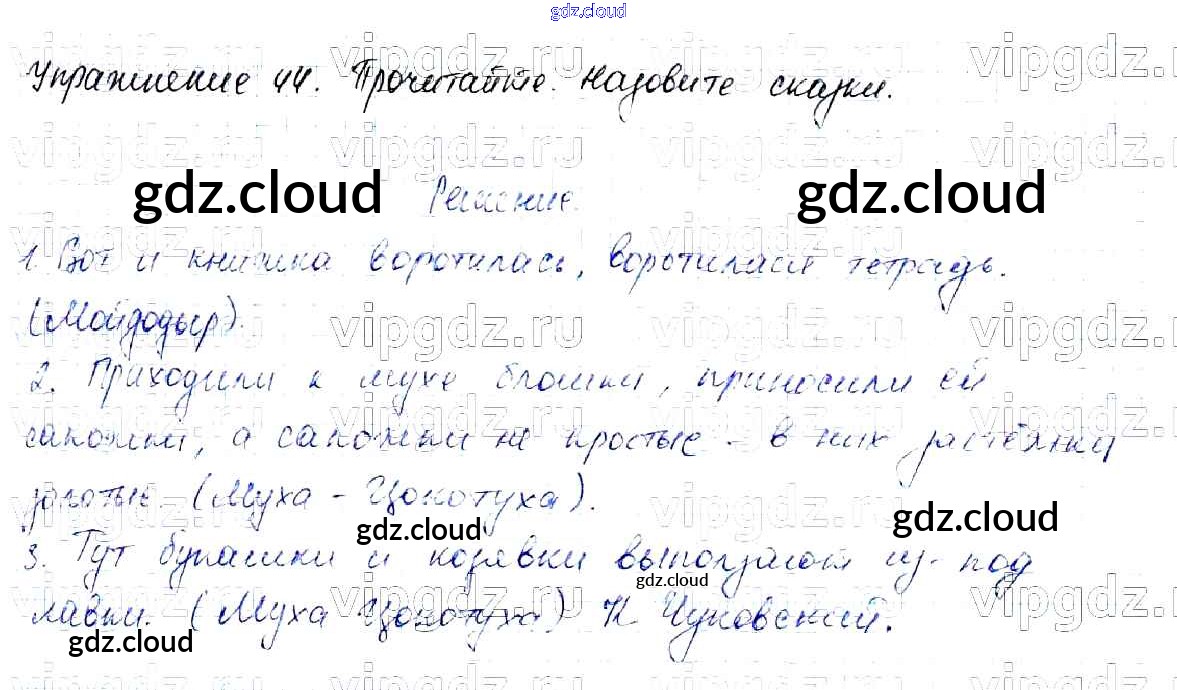 gdz.cloud
Упражнение 44. Прочитайте. Назовите сказки.
gdz.cloud Решение. gdz.cloud
1. Вот и книжка воротилась, воротилася тетрадь.
(Мойдодыр).
2. Приходили к мухе блошки, приносили ей
сапожки, а сапожки не простые - в них застёжки
золотые. (Муха - Цокотуха).
gdz.cloud gdz.cloud
3. Тут букашки и козявки выползают из-под
gdz.cloud
лавки. (Муха Цокотуха) К Чуковский.
gdz.cloud
vipgdz.ru